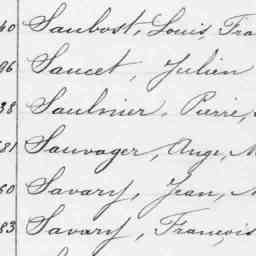 40 Saubost, Louis, Fra
96 Saucet, Julien
38 Saulnier, Pierre,
681 Sauvager, Ange, M
60 Savary, Jean, M
83 Savary, François